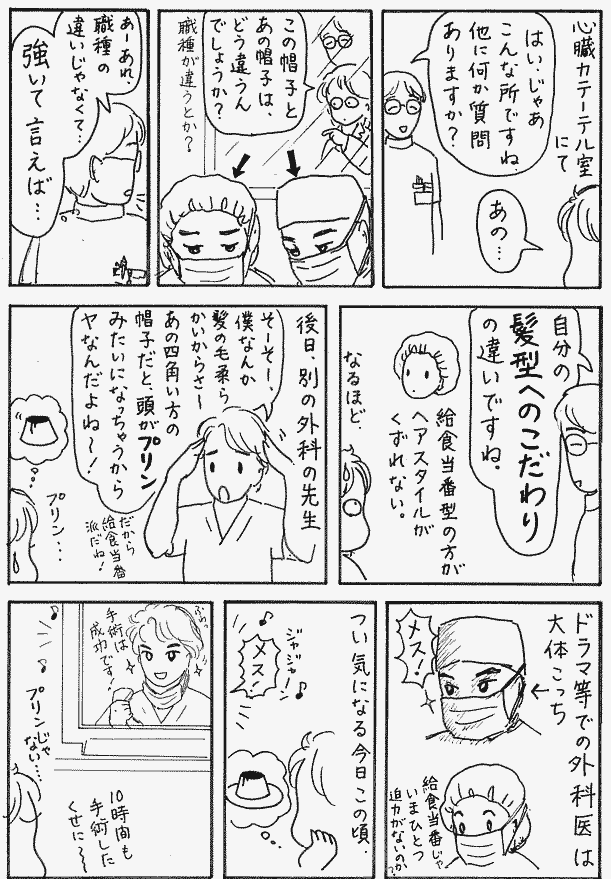 心臓カテーテル室
にて
はい、じゃあ
こんな所ですね。
他に何か質問
ありますか？
あの…
この帽子と
あの帽子は、
どう違うん
でしょうか？
職種が違うとか？
あーあれ、
職種の
違いじゃなくて…
強いて言えば…
自分の
髪型へのこだわり
の違いですね。
給食当番型の方が
ヘアスタイルが
くずれない。
なるほど、
後日、別の外科の先生
そーそー、
僕なんか
髪の毛柔ら
かいからさ〜
あの四角い方の
帽子だと、頭がプリン
みたいになっちゃうから
ヤなんだよね〜！
だから
給食当番
派だね！
プリン…
ドラマ等での外科医は
大体こっち
メス！
給食当番じゃ
いまひとつ
迫力がないのか？
つい気になる今日この頃。
ジャジャーン
メス！
ふわっ
手術は
成功です！
プリンじゃ
ない…
10時間も
手術した
くせに〜